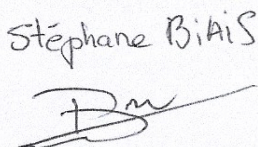 Stéphane BiAiS